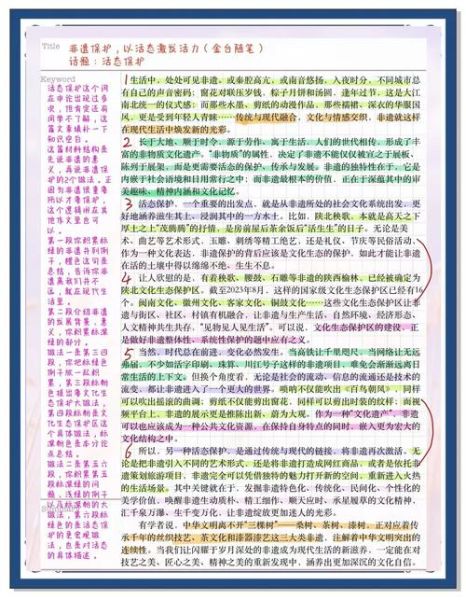 Title 非遗保护，以活态激发活力（金台随笔）
话题：活态保护
Keyword
活态保护这个词
在申论出现过多
次，但肯定还有
同学不了解，这
篇文章填补一下
知识空白。
先说非遗的意
义，再说活态保
护的2个做法。正
因为非遗很重要
所以才要保护，
这个逻辑在其
他作文里也可
以。
第一段你积累标
绿的非遗并列例
子，橙色这句表
总结，告诉你非
遗离我们并不
远，就在现代生
活里。
第二段介绍非遗
的发展背景，意
义，你积累标深
绿的部分。
做法一是第三四
段，你把标绿色
例子放一起积
累，第三段标粉
色提出要文化生
态保护区做法，
第四段标粉是文
化生态保护区这
个具体做法，标
深粉色是本分论
点总结。
做法二是第五六
段，你积累第五
段标绿的问
题，浅绿的例子
以及标深粉的大
做法，第六段标
绿的是活态保护
的更宏观做
法，也是对活态
的具体描述。
1 生活中，处处可见非遗。或秦腔高亢，或南音悠扬，入夜时分，不同城市总
有自己的声音密码；窗花对联压岁钱，粽子月饼和汤圆，逢年过节，这是大江
南北统一的仪式感；而那些水墨、剪纸的动漫作品，那些襦裙、深衣的华服国
风，更是受到年轻人青睐……传统与现代融合，文化与情感交织，非遗就这样
在现代生活中焕发新的光彩。
2 长于大地、顺于时令、源于劳作、寓于生活，人们的世代相传，形成了丰
富的非物质文化遗产。“非物质”的属性，决定了非遗不能仅仅被置之于展板、
陈列于展架，而是更需要活态的保护、传承与发展。非遗的独特性在于，它是
内嵌于社会语境和日用常行之中；而非遗最根本的价值，正在于深蕴其中的审
美趣味、精神内涵和文化记忆。
3 活态保护，一个重要的出发点，就是从非遗所处的社会文化系统出发，更
好地涵养滋生其上、浸润其中的一方水土。比如，陕北秧歌，本就是高天之下
厚土之上“茂腾腾”的抒情，是房前屋后茶余饭后“活生生”的日子。无论是美
术、曲艺等艺术形式，玉雕、刺绣等精工绝艺，还是礼仪、节庆等民俗活动，
作为一种文化表达，非遗保护的背后应该是文化生态的保护。如此才能让非遗
在活的土壤中得以绵绵不绝、生生不息。
4 让人欣慰的是，有着秧歌、腰鼓、石雕等非遗的陕西榆林，已经被确定为
陕北文化生态保护区。截至2023年8月，这样的国家级文化生态保护区已经有16
个。闽南文化、徽州文化、客家文化、铜鼓文化……这些文化生态保护区让非遗
与街区、社区、村镇有机融合，让非遗与生产生活、自然环境、经济形态、
人文精神共生共存。“见物见人见生活”。可以说，文化生态保护区的建设，正
是做好非遗整体性、系统性保护的题中应有之义。
5 当然，时代总在前进、变化必然发生。当高铁让千里咫尺、当网络让无远
弗届，不少如活字印刷、珠算、川江号子这样的非遗项目，难免会渐渐远离日
常生活的上下文。但换个角度看，无论是社会的流动、信息的流通还是技术的
流变，都让非遗进入了一个更大的世界。唢呐不仅能吹出《百鸟朝凤》，同样
可以吹出摇滚的曲调；剪纸不仅能剪出窗花，同样可以剪出时装的纹样；而视
频平台上，非遗的展示更是推陈出新、蔚为大观。作为一种“文化遗产”，非遗
可以也应该成为一种公共文化资源，在保持自身特点的同时，嵌入更为宏大的
文化结构之中。
6 所以，另一种活态保护，是通过传统与现代的链接，将非遗再次激活。无
论是把非遗引入不同的艺术形式，还是将非遗打造成网红商品，或者是依托非
遗策划旅游项目，非遗完全可以凭借独特的魅力打开新的空间，重新进入火热
的生活场景。其中关键就在于，发掘非遗特色化、传统化、民间化、个性化的
美学价值，唤醒非遗生动质朴、精工细作、顺天应时、承星履草的文化精神，
汇千泉万瀑、生千变万化，让非遗绽放更加迷人的光彩。
有学者说，中华文明离不开“三棵树”——桑树、茶树、漆树，正对应着传
承千年的丝织技艺、茶文化和漆器漆艺这三大类非遗，注解着中华文明突出的
连续性。当我们让闪耀于岁月深处的非遗成为现代生活的新滋养，一定能在对
技艺之美、匠心之美、精神之美的重新发现中，涵养出更加深沉的文化自信。